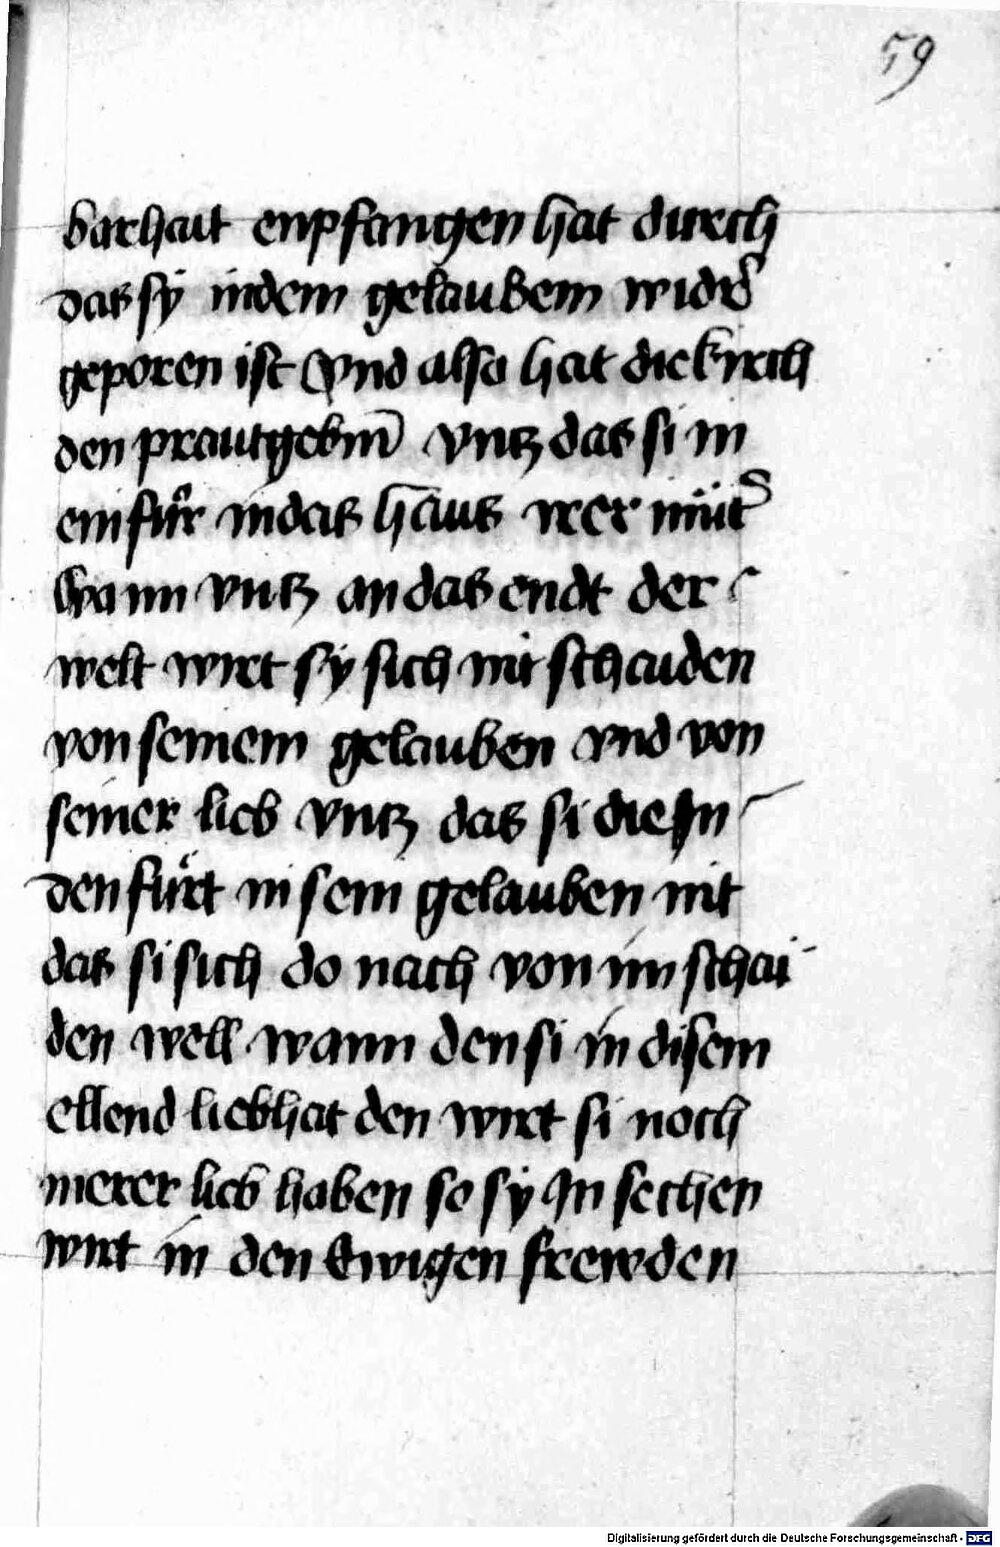 59
barhait enpfangen hat durch
das sy in dem gelaubem wider
geporen ist vnd also hat die kirch
den prautgebm̄ vntz das si in
ein für in das haus irer müt̾
wann vntz an das endt der
welt wirt sy sich nit schaiden
von seinem gelauben vnd von
seiner lieb vntz das si die Jn
den fürt in sein gelauben nit
das si sich do nach von im schai
den well wann den si in disem
ellend lieb hat den wirt si noch
merer lieb haben so sy Jn sechen
wirt in den Ewigen frewden
Digitalisierung gefördert durch die Deutsche Forschungsgemeinschaft - DFG